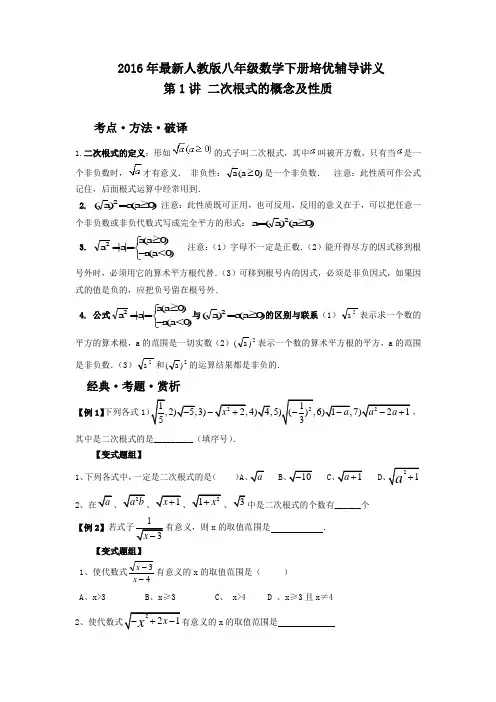 2016年最新人教版八年级数学下册培优辅导讲义
第1讲 二次根式的概念及性质
考点·方法·破译
1.二次根式的定义：形如√a(a≥0)的式子叫二次根式，其中a叫被开方数，只有当a是一
个非负数时，√a才有意义． 非负性：√a(a≥0)是一个非负数． 注意：此性质可作公式
记住，后面根式运算中经常用到．
2. (√a)²=a(a≥0) 注意：此性质既可正用，也可反用，反用的意义在于，可以把任意一
个非负数或非负代数式写成完全平方的形式：a=(√a)²(a≥0)
3. √a²=|a|={a(a≥0) −a(a<0) 注意：（1）字母不一定是正数．（2）能开得尽方的因式移到根
号外时，必须用它的算术平方根代替．（3）可移到根号内的因式，必须是非负因式，如果因
式的值是负的，应把负号留在根号外．
4. 公式√a²=|a|={a(a≥0) −a(a<0)与(√a)²=a(a≥0)的区别与联系（1）√a²表示求一个数的
平方的算术根，a的范围是一切实数（2）(√a)²表示一个数的算术平方根的平方，a的范围
是非负数．（3）√a²和(√a)²的运算结果都是非负的．
经典·考题·赏析
【例1】下列各式1)√(1/5),2)√−5,3)−√(x²+2),4)√4,5)√((−1/3)²),6)√(1−a),7)√(a²−2a+1)，
其中是二次根式的是_________（填序号）．
【变式题组】
1、下列各式中，一定是二次根式的是（ ）A、√a B、√−10 C、√(a+1) D、√(a²+1)
2、在√a、√(a²b)、√(x+1)、√(1+x²)、√3中是二次根式的个数有______个
【例2】若式子1/√(x−3)有意义，则x的取值范围是 ．
【变式题组】
1、使代数式√(x−3)/(x−4)有意义的x的取值范围是（ ）
A、x>3 B、x≥3 C、 x>4 D 、x≥3且x≠4
2、使代数式√(−x²+2x−1)有意义的x的取值范围是